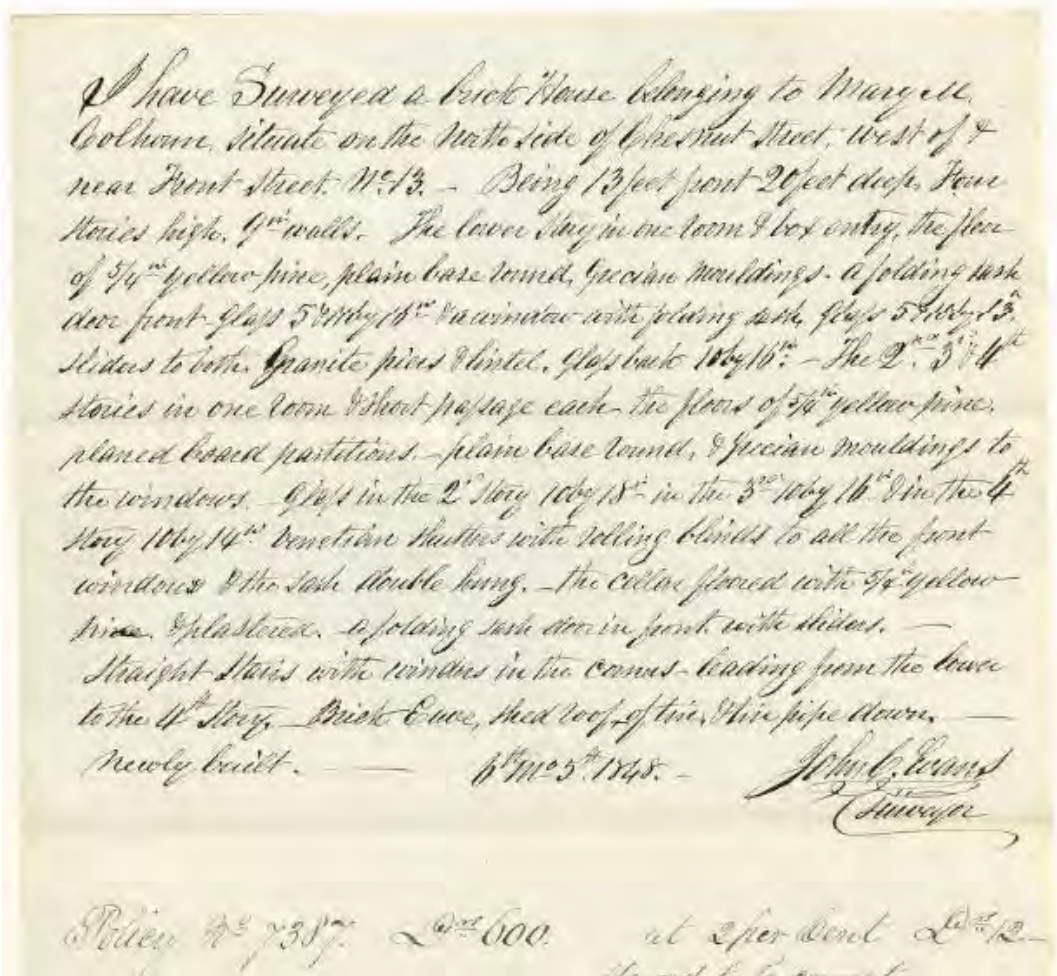 I have Surveyed a brick House belonging to Mary M.
Colhoun, situate on the North side of Chesnut Street, west of &
near Front Street. No. 13. — Being 13 feet front 20 feet deep, Four
stories high, 9 in walls. The lower Story in one room & box entry, the floor
of 5/4 in yellow pine, plain base round, Grecian mouldings. a folding sash
door front Glass 5 & 10 by 16 in & a window with folding sash, Glass 5 & 10 by 13 in
sliders to both. Granite piers & lintel. Glass back 10 by 16 in. — The 2nd 3d & 4th
stories in one room & short passage each the floors of 5/4 in yellow pine,
planed board partitions. — plain base round, & Grecian mouldings to
the windows. Glass in the 2d Story 10 by 18 in in the 3rd 10 by 16 in & in the 4th
Story 10 by 14 in. Venetian Shutters with rolling blinds to all the front
windows & the sash double hung. — the cellar floored with 5/4 in yellow
pine, & plastered. a folding sash door in front with sliders. —
Straight Stairs with winders in the corners leading from the lower
to the 4th Story. Brick Eave, shed roof, of tin, & tin pipe down. —
Newly built. — 6th Mo 5th 1848. — John C. Evans
Surveyor
Policy No 7387. 600. at 2 per Cent 12